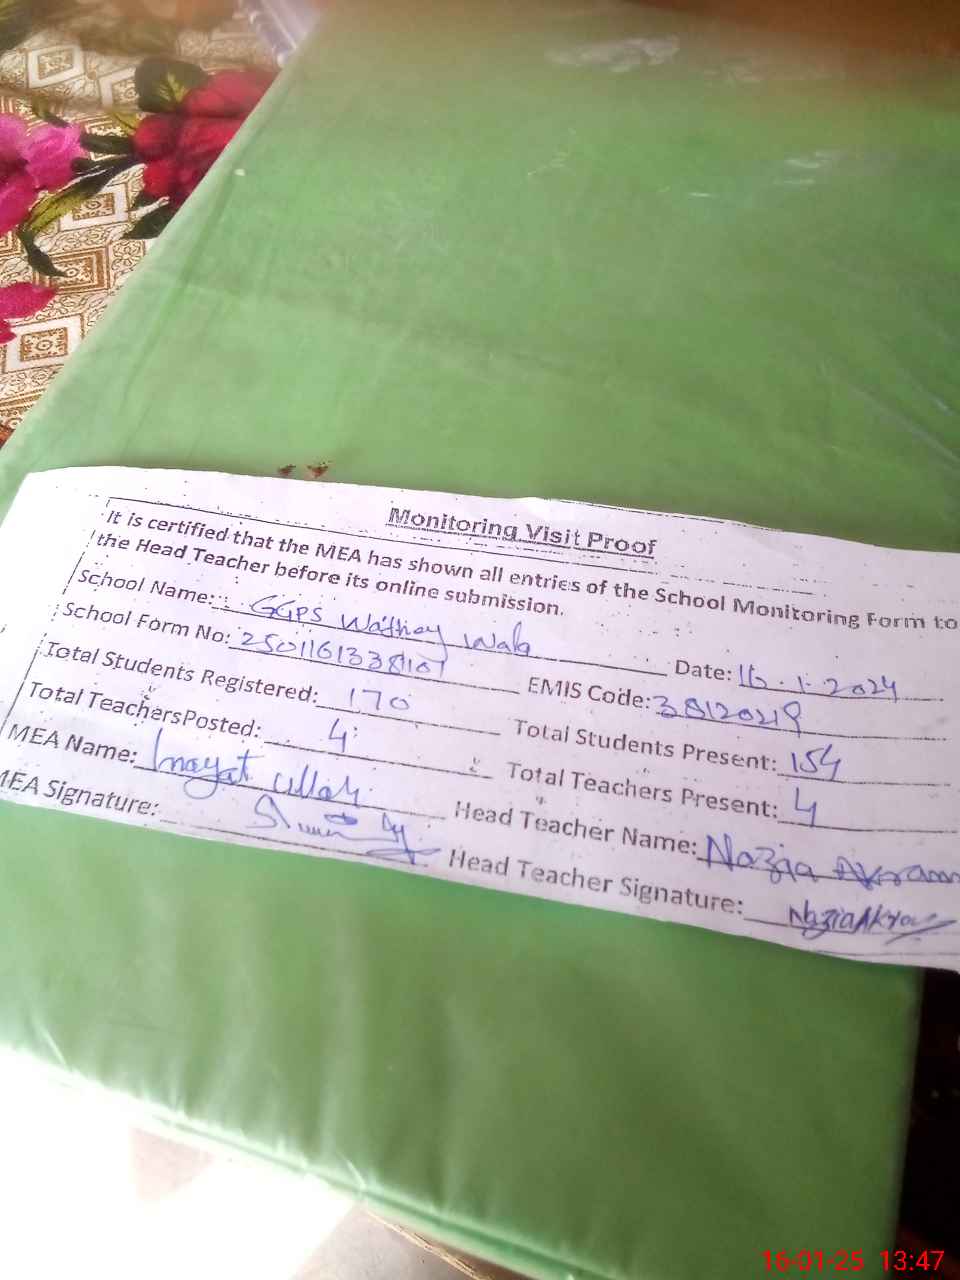 Monitoring Visit Proof
It is certified that the MEA has shown all entries of the School Monitoring Form to
the Head Teacher before its online submission.
School Name: GGPS Wala Date: 16.1.2024
School Form No: EMIS Code: 38120219
Total Students Registered: 170 Total Students Present: 154
Total Teachers Posted: 4 Total Teachers Present: 4
MEA Name: Inayat Ullah Head Teacher Name: Nazia Akram
MEA Signature: Head Teacher Signature: Nazia Akram
16-01-25 13:47